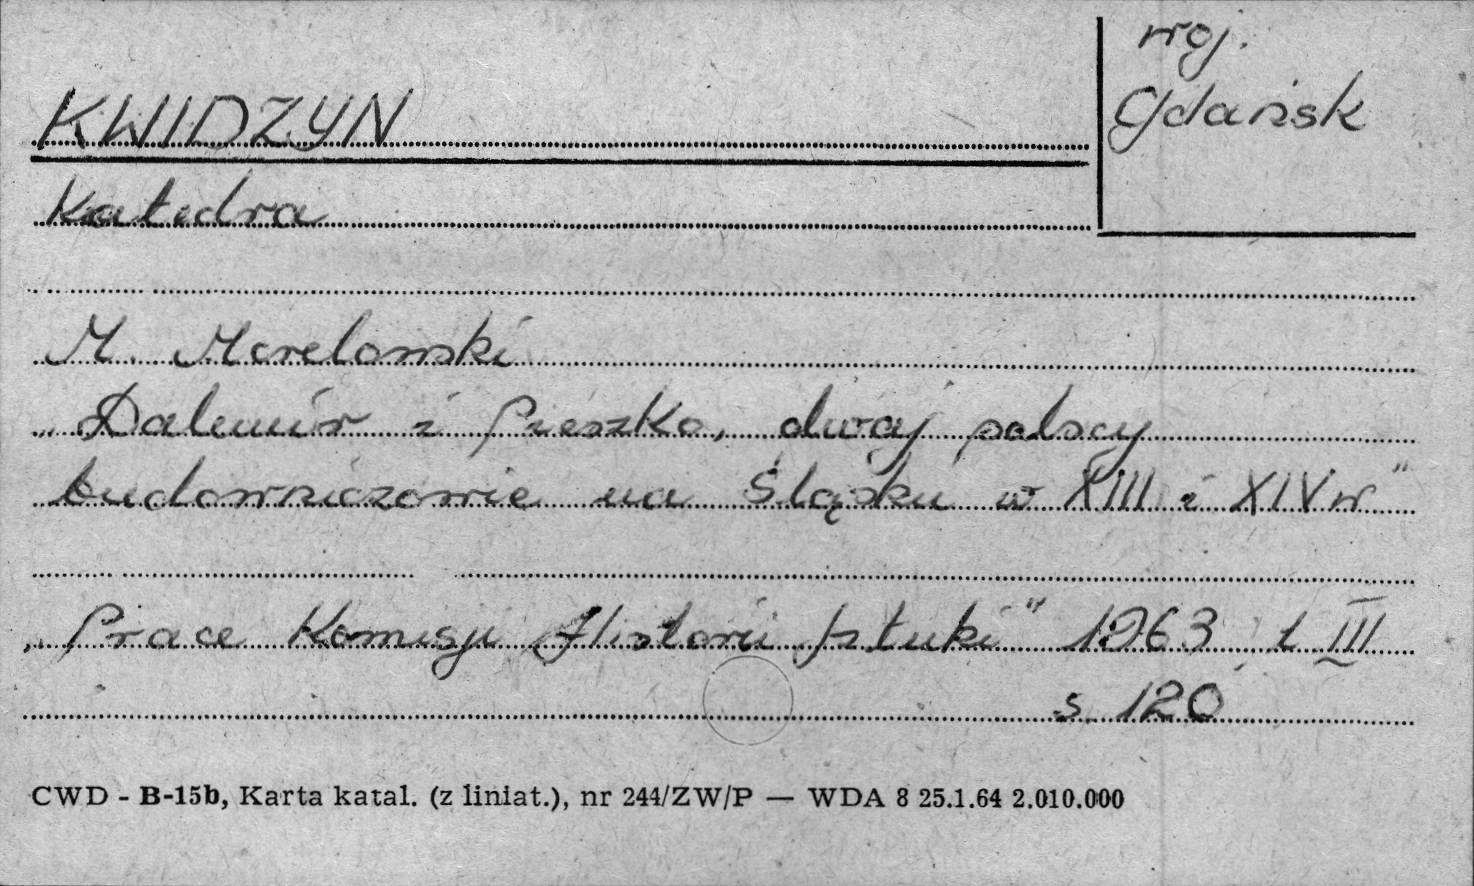 woj.
Gdańsk
KWIDZYN
Katedra
M. Morelowski
„Dalemir i Pieszko, dwaj polscy
budowniczowie na Śląsku w XIII i XIV w"
„Prace Komisji Historii Sztuki" 1963 t III
s. 120
CWD - B-15b, Karta katal. (z liniat.), nr 244/ZW/P — WDA 8 25.1.64 2.010.000